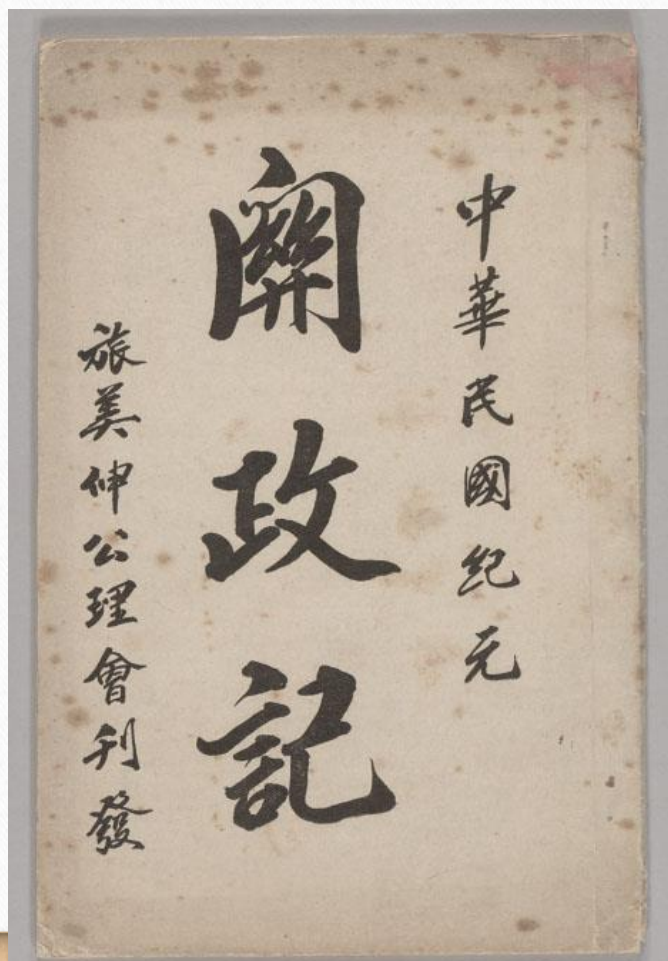 中華民國紀元
關政記
旅美伸公理會刋發